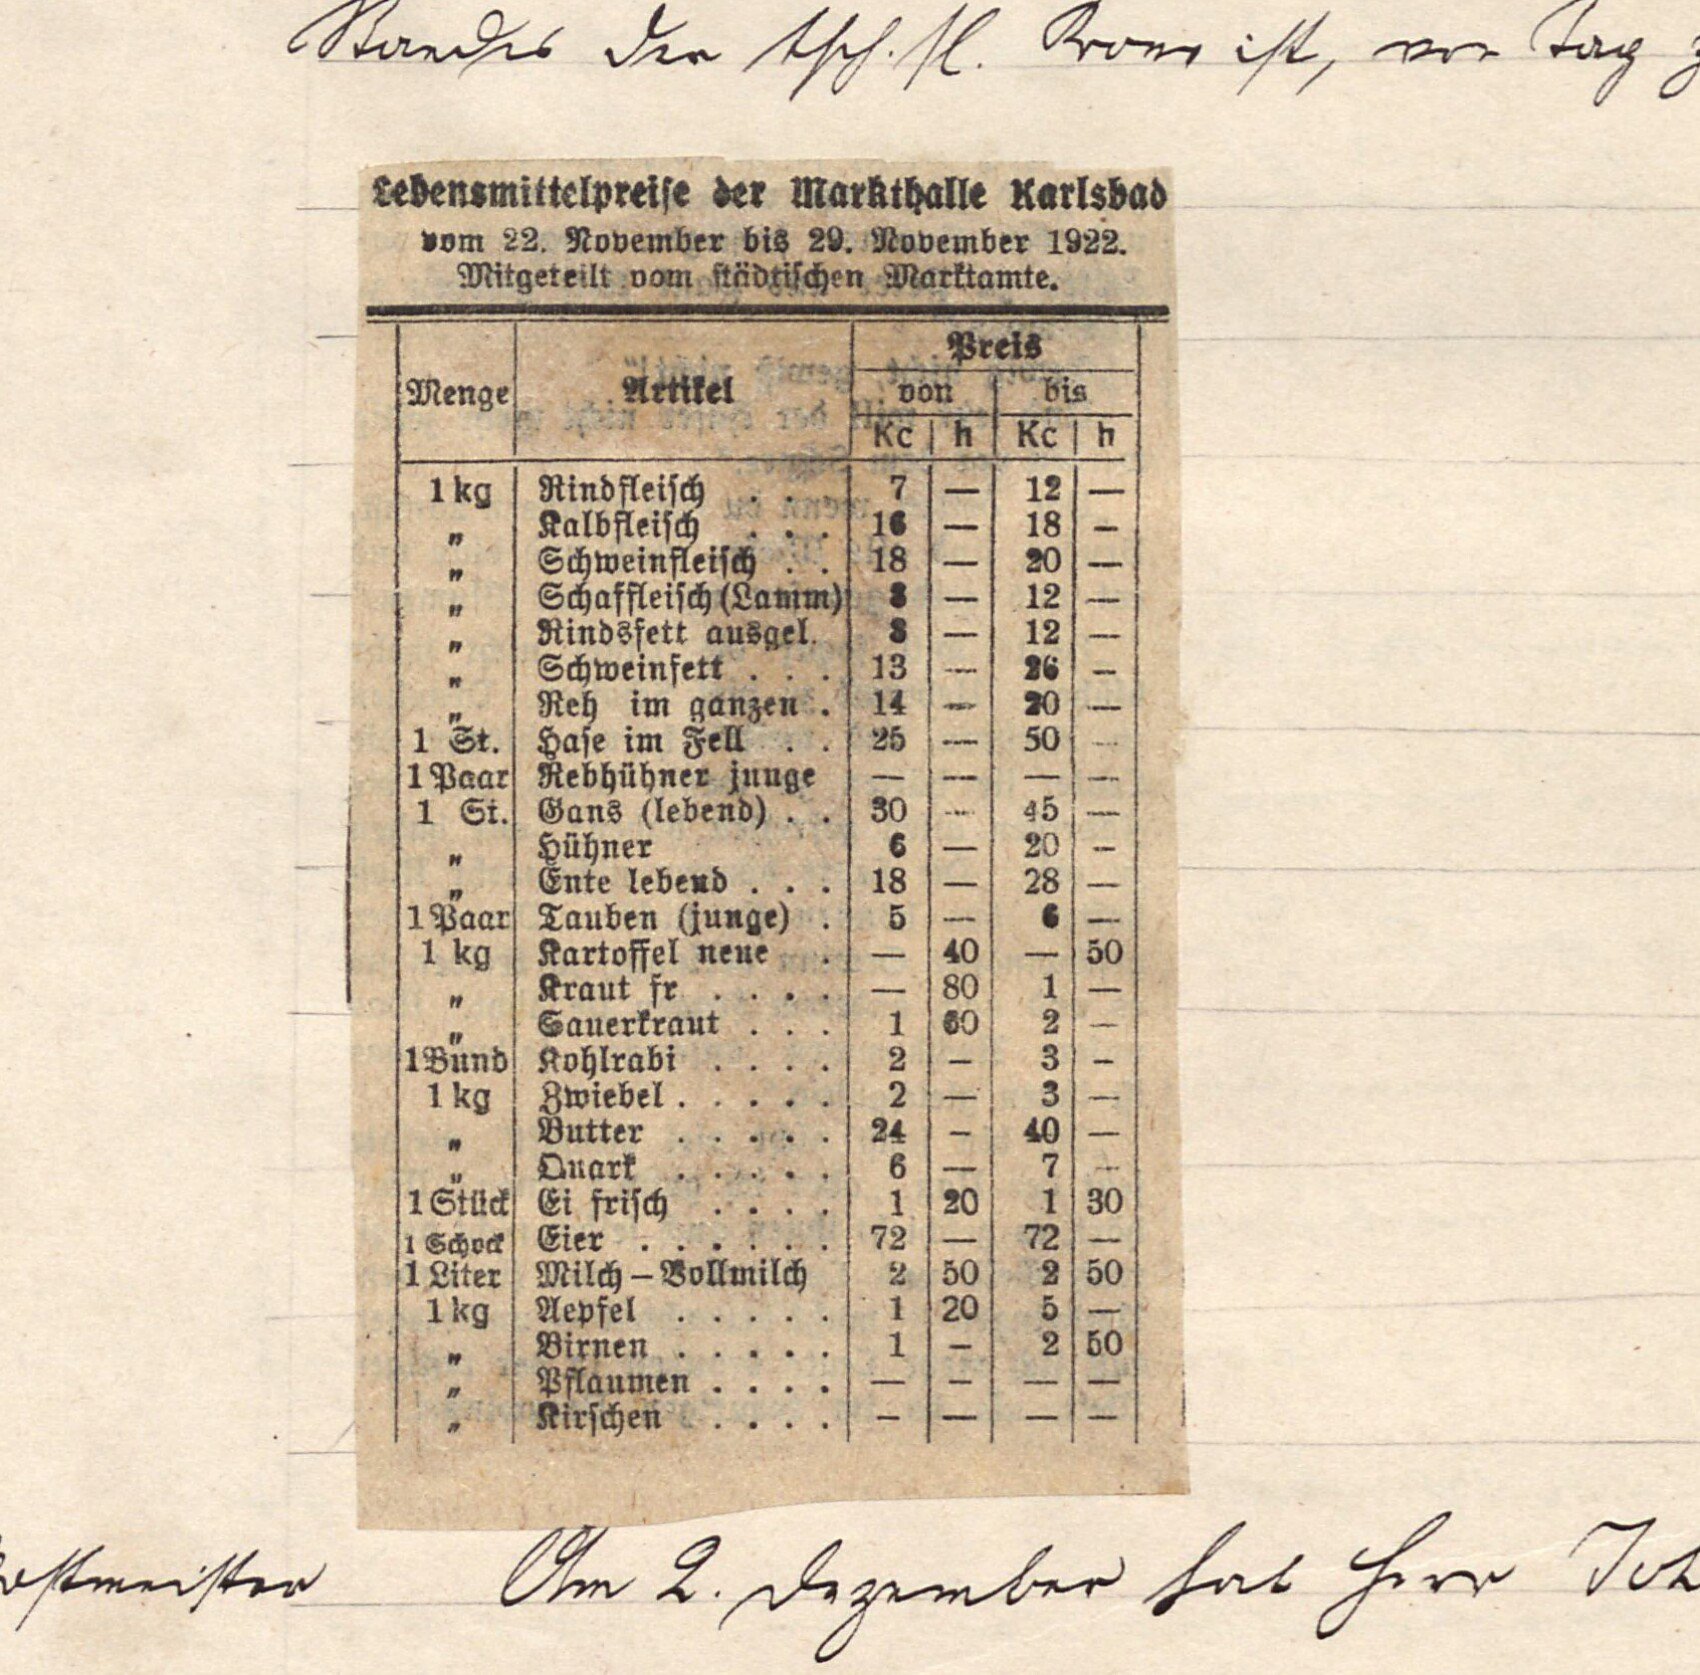 Standes der tsch. sl. Krone ist, von Tag z
Lebensmittelpreise der Markthalle Karlsbad
vom 22. November bis 29. November 1922.
Mitgeteilt vom städtischen Marktamte.
Menge Artikel Preis
von bis
Kc h Kc h
1 kg Rindfleisch . . 7 — 12 —
„ Kalbfleisch . . . 16 — 18 —
„ Schweinfleisch . . 18 — 20 —
„ Schaffleisch (Lamm) 8 — 12 —
„ Rindsfett ausgel. 8 — 12 —
„ Schweinfett . . . 13 — 26 —
„ Reh im ganzen . 14 — 20 —
1 St. Hase im Fell . . 25 — 50 —
1 Paar Rebhühner junge — — — —
1 St. Gans (lebend) . . 30 — 45 —
„ Hühner 6 — 20 —
„ Ente lebend . . . 18 — 28 —
1 Paar Tauben (junge) . 5 — 6 —
1 kg Kartoffel neue . — 40 — 50
„ Kraut fr . . . . — 80 1 —
„ Sauerkraut . . . 1 60 2 —
1 Bund Kohlrabi . . . . 2 — 3 —
1 kg Zwiebel . . . . . 2 — 3 —
„ Butter . . . . . 24 — 40 —
„ Quark . . . . . 6 — 7 —
1 Stück Ei frisch . . . . 1 20 1 30
1 Schock Eier . . . . . . 72 — 72 —
1 Liter Milch – Vollmilch 2 50 2 50
1 kg Aepfel . . . . . 1 20 5 —
„ Birnen . . . . . 1 — 2 50
„ Pflaumen . . . . — — — —
„ Kirschen . . . . — — — —
ostmeister Am 2. Dezember hat Herr Joh